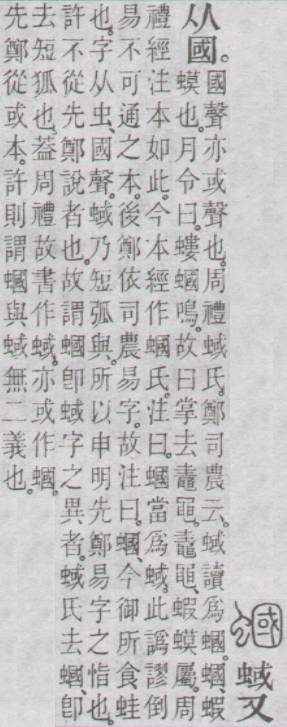 蟈 蜮又
从國。
國聲亦或聲也。周禮蜮氏。鄭司農云。蜮讀爲蟈。蟈、蝦
蟇也。月令曰。螻蟈鳴。故曰掌去鼃黽。鼃黽、蝦蟇屬。周
禮經注本如此。今本經作蟈氏。注曰。蟈當爲蜮。此譌謬倒
易不可通之本。後鄭依司農易字。故注曰。蟈、今御所食蛙
也。字从虫、國聲。蜮乃短弧與。所以申明先鄭易字之恉也。
許不從先鄭說者也。故謂蟈卽蜮字之異者。蜮氏去蟈、卽
去短狐也。葢周禮故書作蜮、亦或作蟈。
先鄭從或本。許則謂蟈與蜮無二義也。